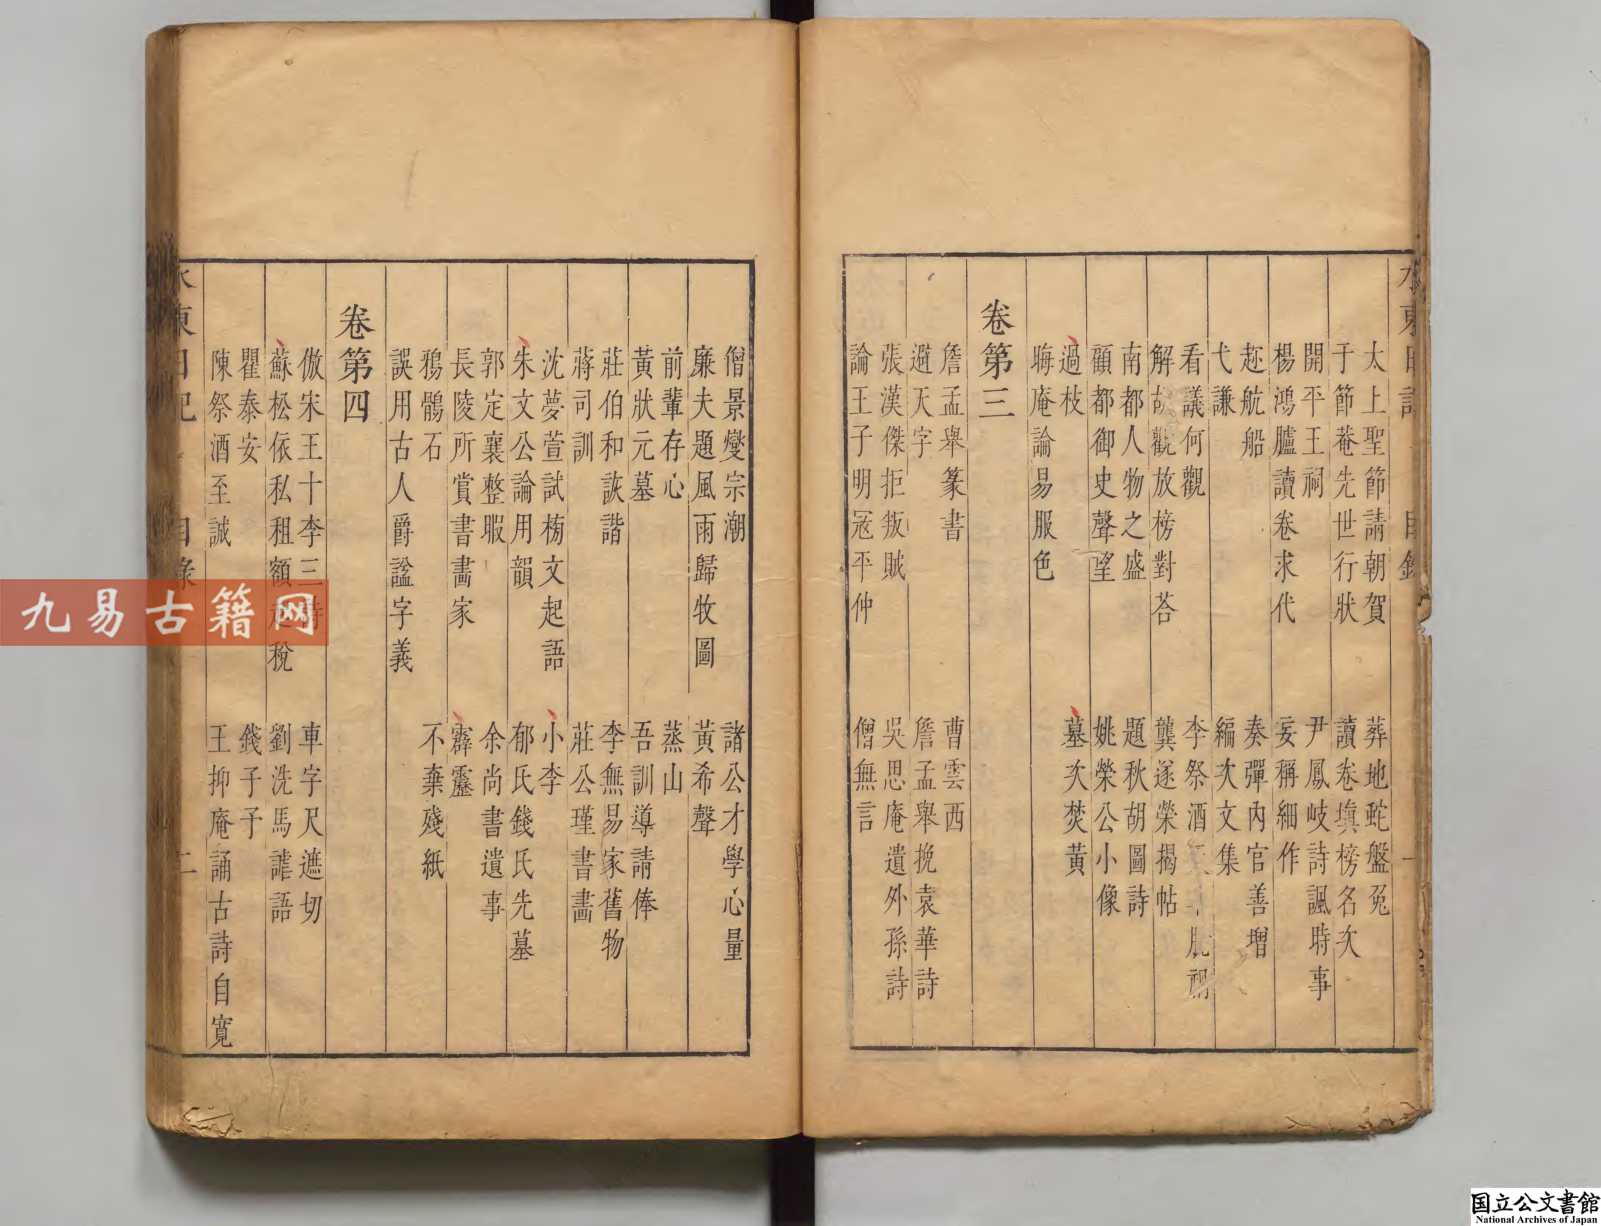 水東日記 目錄 一
太上聖節請朝賀 葬地蛇盤兔
于節菴先世行狀 讀卷填榜名次
開平王祠 尹鳳岐詩諷時事
楊鴻臚讀卷求代 妄稱細作
趂航船 奏彈內官善增
弋謙 編次文集
看議何觀 李祭酒
解 觀放榜對荅 龔遂榮揭帖
南都人物之盛 題秋胡圖詩
顧都御史聲望 姚榮公小像
過枝 墓次焚黃
晦庵論易服色
卷第三
詹孟舉篆書 曹雲西
避天字 詹孟舉挽袁華詩
張漢傑拒叛賊 吳思庵遺外孫詩
論王子明冦平仲 僧無言
僧景燮宗潮 諸公才學心量
廉夫題風雨歸牧圖 黃希聲
前輩存心 蒸山
黃狀元墓 吾訓導請俸
莊伯和詼諧 李無易家舊物
蔣司訓 莊公瑾書畫
沈夢萱試栃文起語 小李
朱文公論用韻 郁氏錢氏先墓
郭定襄整暇 余尚書遺事
長陵所賞書畵家 霹靂
鴉鶻石 不棄殘紙
誤用古人爵謚字義
卷第四
倣宋王十李三詩 車字尺遮切
蘇松依私租額起稅 劉洗馬謔語
瞿泰安 錢子予
陳祭酒至誠 王抑庵誦古詩自寬
水東日記 目錄 二
九易古籍网
国立公文書館
National Archives of Japan